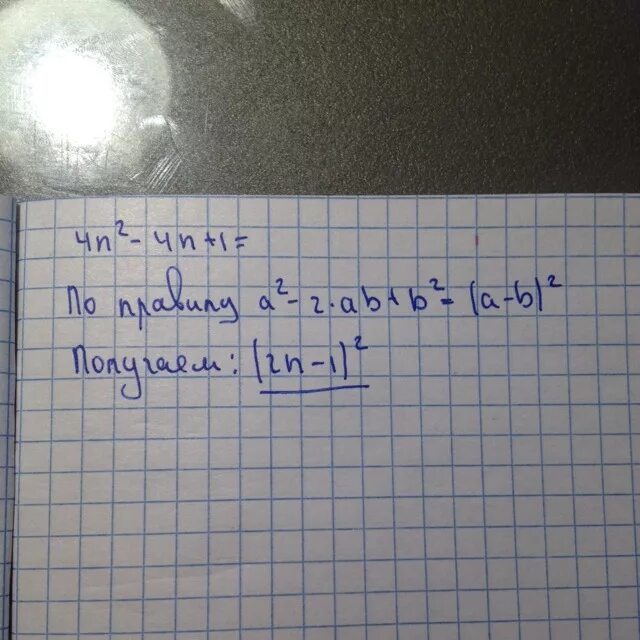 4n² - 4n + 1 =
По правилу a² - 2·ab + b² = (a - b)²
Получаем: (2n - 1)²